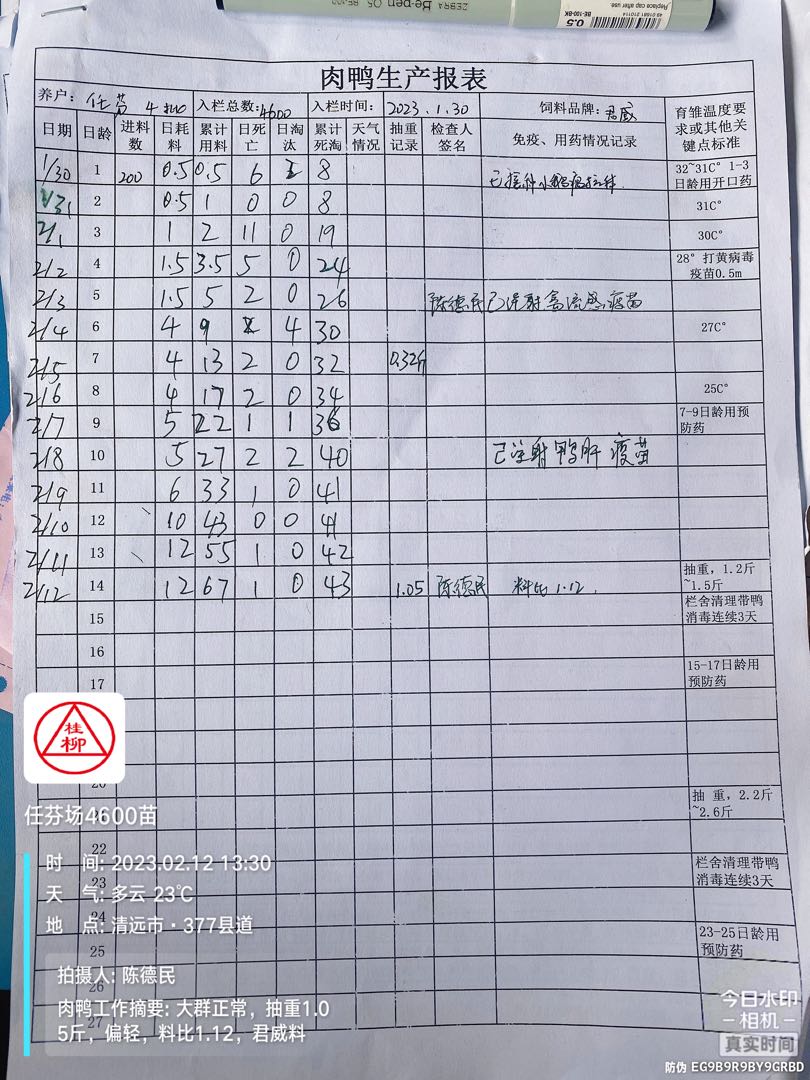 ZEBRA Be-pen 05 BE-100
Replace cap after use.
BE-100-BK
0.5
肉鸭生产报表
养户: 任芬 入栏总数: 4600 入栏时间: 2023.1.30 饲料品牌: 君威 育雏温度要求或其他关键点标准
日期 日龄 进料数 日耗料 累计用料 日死亡 日淘汰 累计死淘 天气情况 抽重记录 检查人签名 免疫、用药情况记录
1/30 1 200 0.5 0.5 6 8 32~31C° 1-3日龄用开口药
1/31 2 0.5 1 0 0 8 31C°
2/1 3 1 2 11 0 19 30C°
2/2 4 1.5 3.5 5 0 24 28° 打黄病毒疫苗0.5m
2/3 5 1.5 5 2 0 26 陈德民 已注射禽流感疫苗
2/4 6 4 9 4 30 27C°
2/5 7 4 13 2 0 32 0.32斤
2/6 8 4 17 2 0 34 25C°
2/7 9 5 22 1 1 36 7-9日龄用预防药
2/8 10 5 27 2 2 40 已注射鸭肝疫苗
2/9 11 6 33 1 0 41
2/10 12 10 43 0 0 41
2/11 13 12 55 1 0 42
2/12 14 12 67 1 0 43 1.05 陈德民 料比1.12. 抽重，1.2斤~1.5斤
15 栏舍清理带鸭消毒连续3天
16
17 15-17日龄用预防药
抽 重，2.2斤~2.6斤
22
23 栏舍清理带鸭消毒连续3天
24
25 23-25日龄用预防药
26
27
桂
柳
任芬场4600苗
时 间: 2023.02.12 13:30
天 气: 多云 23℃
地 点: 清远市·377县道
拍摄人: 陈德民
肉鸭工作摘要: 大群正常，抽重1.0
5斤，偏轻，料比1.12，君威料
今日水印
相机
真实时间
防伪 EG9B9R9BY9GRBD